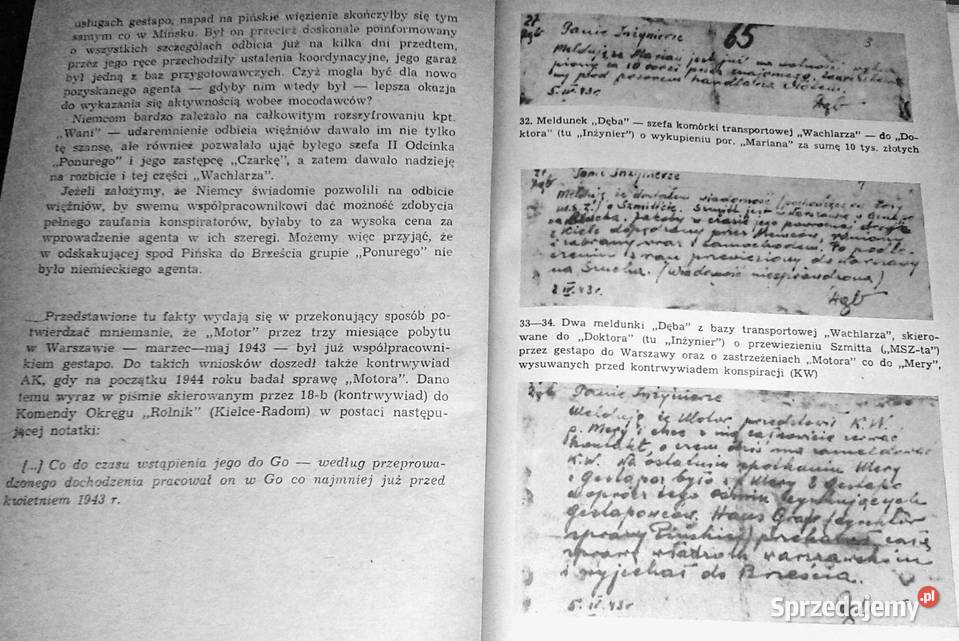 usługach gestapo, napad na pińskie więzienie skończyłby się tym
samym co w Mińsku. Był on przecież doskonale poinformowany
o wszystkich szczegółach odbicia już na kilka dni przedtem,
przez jego ręce przechodziły ustalenia koordynacyjne, jego garaż
był jedną z baz przygotowawczych. Czyż mogła być dla nowo
pozyskanego agenta — gdyby nim wtedy był — lepsza okazja
do wykazania się aktywnością wobec mocodawców?
Niemcom bardzo zależało na całkowitym rozszyfrowaniu kpt.
„Wani” — udaremnienie odbicia więźniów dawało im nie tylko
tę szansę, ale również pozwalało ująć byłego szefa II Odcinka
„Ponurego” i jego zastępcę „Czarkę”, a zatem dawało nadzieję
na rozbicie i tej części „Wachlarza”.
Jeżeli założymy, że Niemcy świadomie pozwolili na odbicie
więźniów, by swemu współpracownikowi dać możność zdobycia
pełnego zaufania konspiratorów, byłaby to za wysoka cena za
wprowadzenie agenta w ich szeregi. Możemy więc przyjąć, że
w odskakującej spod Pińska do Brześcia grupie „Ponurego” nie
było niemieckiego agenta.
Przedstawione tu fakty wydają się w przekonujący sposób po-
twierdzać mniemanie, że „Motor” przez trzy miesiące pobytu
w Warszawie — marzec—maj 1943 — był już współpracowni-
kiem gestapo. Do takich wniosków doszedł także kontrwywiad
AK, gdy na początku 1944 roku badał sprawę „Motora”. Dano
temu wyraz w piśmie skierowanym przez 18-b (kontrwywiad) do
Komendy Okręgu „Rolnik” (Kielce-Radom) w postaci następu-
jącej notatki:
[...] Co do czasu wstąpienia jego do Go — według przeprowa-
dzonego dochodzenia pracował on w Go co najmniej już przed
kwietniem 1943 r.
Panie Inżynierze 65 3
Melduję że Marian jest już na wolności
5.IV.43r.
32. Meldunek „Dęba” — szefa komórki transportowej „Wachlarza” — do „Do-
ktora” (tu „Inżynier”) o wykupieniu por. „Mariana” za sumę 10 tys. złotych
Panie Inżynierze
Melduję że dostałem wiadomość
na Szucha. (Wiadomość niesprawdzona)
2 IV.43r.
33—34. Dwa meldunki „Dęba” z bazy transportowej „Wachlarza”, skiero-
wane do „Doktora” (tu „Inżynier”) o przewiezieniu Szmitta („MSZ-ta”)
przez gestapo do Warszawy oraz o zastrzeżeniach „Motora” co do „Mery”,
wysuwanych przed kontrwywiadem konspiracji (KW)
Panie Inżynierze
Melduję że Motor przedstawił K.W.
p. Mery i chce z nią całkowicie zerwać
kontakt, o czem dziś ma zameldować
K.W. Na ostatnim spotkaniu Mery
z Gestapo było z Mery 2 Gestapo
gestapowców. Hans Graf (dyrektor
sprawy Pińskiej) przekazał całą
sprawę władzom warszawskim
i wyjechał do Brześcia.
5.IV.43r
Sprzedajemy.pl